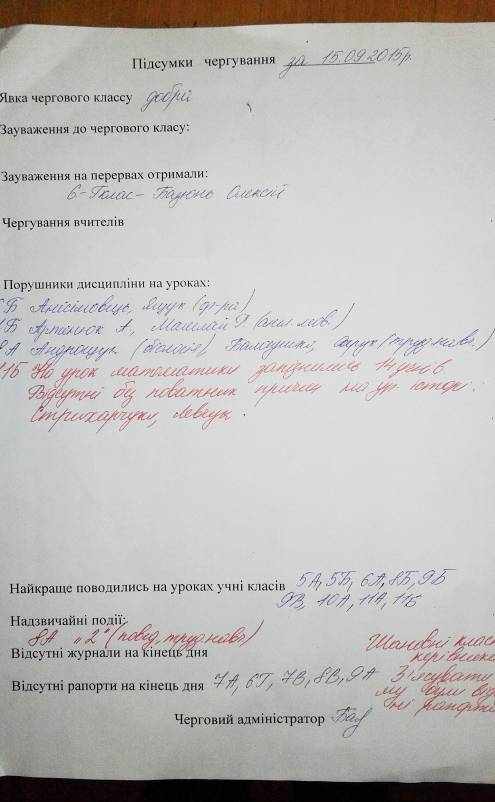 Підсумки чергування за 15.09.2015р.
Явка чергового классу добрій
Зауваження до чергового класу:
Зауваження на перервах отримали:
6-Г клас - Бадюнь Олексій
Чергування вчителів
Порушники дисципліни на уроках:
Б Анісімовець, Ящук (фіз-ра)
Б Артенюк А,
А Андрощук (біологія), (труд навч.)
11Б На урок математики запізнились 14 учнів.
Відсутні без поважних причин на ур. історії:
Стрихарчук, Левчук.
Найкраще поводились на уроках учні класів 5А, 5Б, 6А, 8Б, 9Б
9В, 10А, 11А, 11Б
Надзвичайні події:
8А "2" (повед, труд навч)
Шановні клас
керівники
Відсутні журнали на кінець дня
Відсутні рапорти на кінець дня 7А, 6Г, 7В, 8В, 9А
З'ясувати
му були від
ні рапорти
Черговий адміністратор